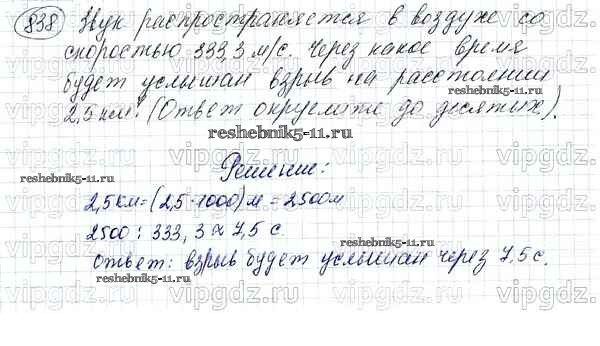 838 Звук распространяется в воздухе со
скоростью 333,3 м/с. Через какое время
будет услышан взрыв на расстоянии
2,5 км? (Ответ округлите до десятых).
reshebnik5-11.ru
Решение:
reshebnik5-11.ru
2,5 км = (2,5 · 1000) м = 2500 м
2500 : 333,3 ≈ 7,5 с.
Ответ: взрыв будет услышан через 7,5 с.
reshebnik5-11.ru
vipgdz.ru